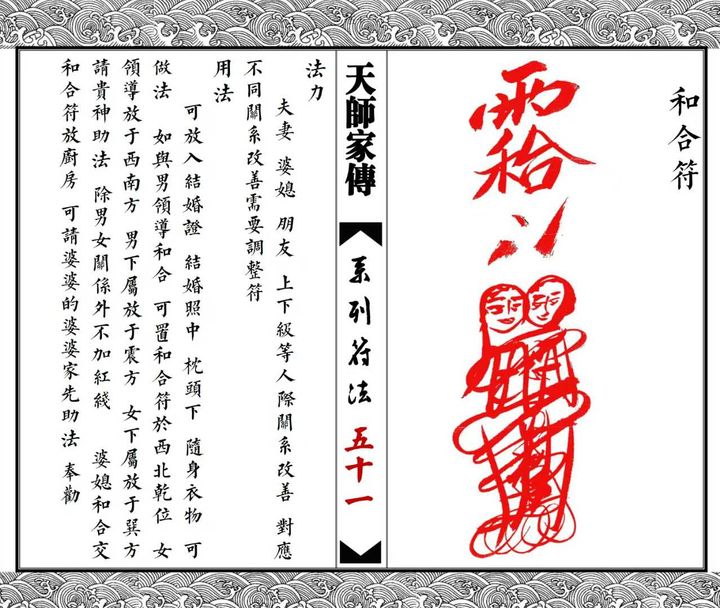 和合符
天師家傳
系列符法 五十一
法力
夫妻 婆媳 朋友 上下級等人際關系改善 對應
不同關系改善需要調整符
用法
可放入結婚證 結婚照中 枕頭下 隨身衣物 可
做法 如與男領導和合 可置和合符於西北乾位 女
領導放于西南方 男下屬放于震方 女下屬放于巽方
請貴神助法 除男女關係外不加紅綫 婆媳和合交
和合符放廚房 可請婆婆的婆婆家先助法 奉勸